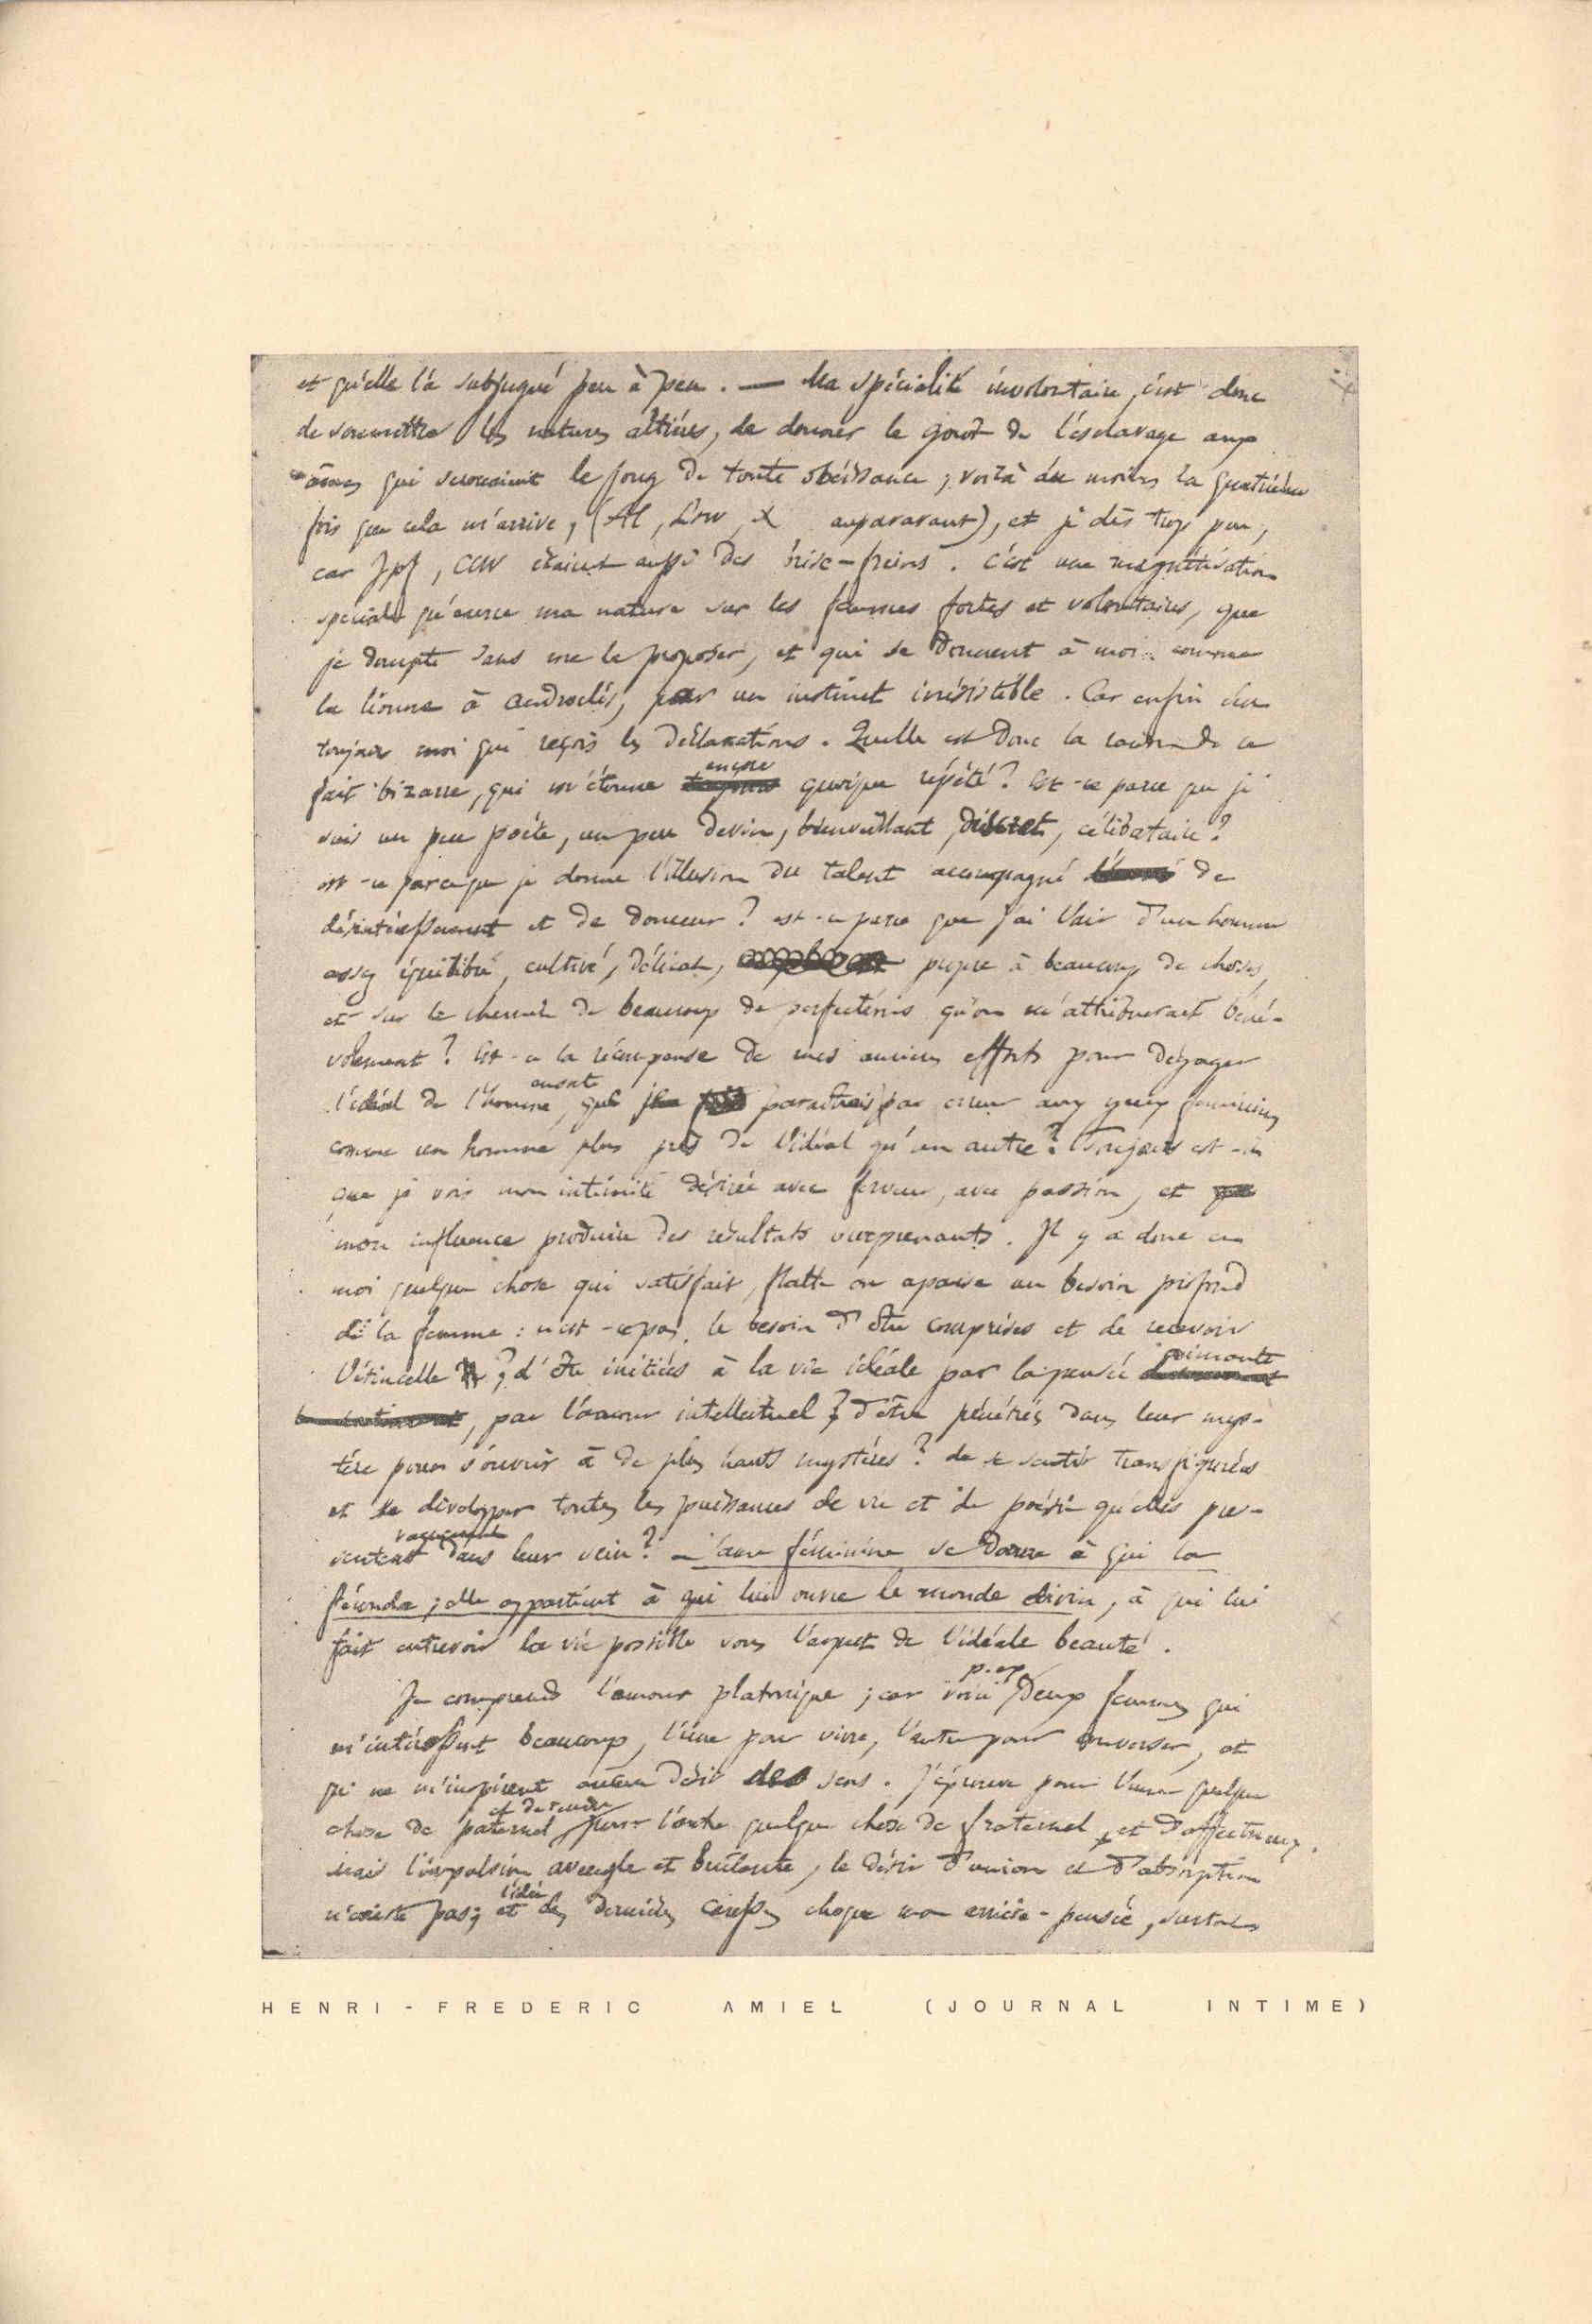 et qu'elle l'a subjugué peu à peu. — Ma spécialité involontaire, c'est donc
de soumettre les natures altières, de donner le goût de l'esclavage aux
âmes qui secouaient le joug de toute obéissance ; voilà du moins la quatrième
fois que cela m'arrive, (Al, X auparavant), et je dis trop peu,
car étaient aussi des brise-freins. C'est une magnétisation
spéciale qu'exerce ma nature sur les femmes fortes et volontaires, que
je dompte sans me le proposer, et qui se donnent à moi comme
la lionne à Androclès, par un instinct irrésistible. Car enfin c'est
toujours moi qui reçois les déclarations. Quelle est donc la raison de ce
fait bizarre, qui m'étonne encore quoique répété ? Est-ce parce que je
suis un peu poète, un peu devin, bienveillant, discret, célibataire ?
est-ce parce que je donne l'illusion du talent accompagné de
désintéressement et de douceur ? est-ce parce que j'ai l'air d'un homme
assez équilibré, cultivé, délicat, propre à beaucoup de choses,
et sur le chemin de beaucoup de perfections qu'on m'attribuerait béné-
volement ? Est-ce la récompense de mes anciens efforts pour dégager
l'idéal de l'homme, que je paraîtrais par erreur aux yeux féminins
comme un homme plus près de l'idéal qu'un autre ? Toujours est-il
que je vois mon intimité désirée avec ferveur, avec passion, et
mon influence produire des résultats surprenants. Il y a donc en
moi quelque chose qui satisfait, flatte ou apaise un besoin profond
de la femme : n'est-ce pas le besoin d'être comprises et de recevoir
l'étincelle ? d'être initiées à la vie idéale par la pensée aimante
, par l'amour intellectuel ? d'être pénétrées dans leur mys-
tère pour s'ouvrir à de plus hauts mystères ? de se sentir transfigurées
et de développer toutes les puissances de vie et de poésie qu'elles pres-
sentent vaguement dans leur sein ? — L'âme féminine se donne à qui la
féconde ; elle appartient à qui lui ouvre le monde divin, à qui lui
fait entrevoir la vie possible sous l'aspect de l'idéale beauté.
Je comprends l'amour platonique ; car voici p. ex. deux femmes qui
m'intéressent beaucoup, l'une pour vivre, l'autre pour converser, et
qui ne m'inspirent aucun désir des sens. J'éprouve pour l'une quelque
chose de paternel et de tendre pour l'autre quelque chose de fraternel et d'affectueux.
mais l'impulsion aveugle et brûlante, le désir d'union et d'absorption
n'existe pas ; et l'idée des dernières caresses choque mon arrière-pensée, surtout
HENRI-FREDERIC AMIEL (JOURNAL INTIME)